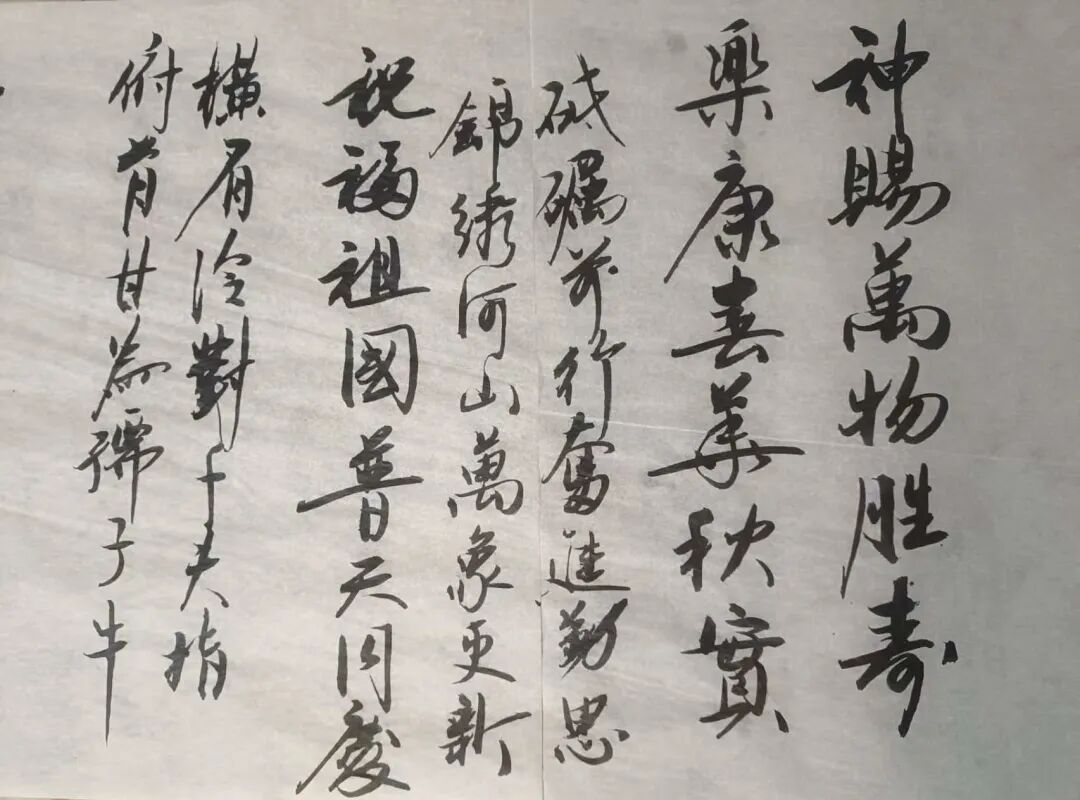 神賜萬物胜寿
樂康春華秋實
砥礪前行奮進勤思
錦绣河山萬象更新
祝福祖國普天同慶
横眉冷對千夫指
俯首甘為孺子牛